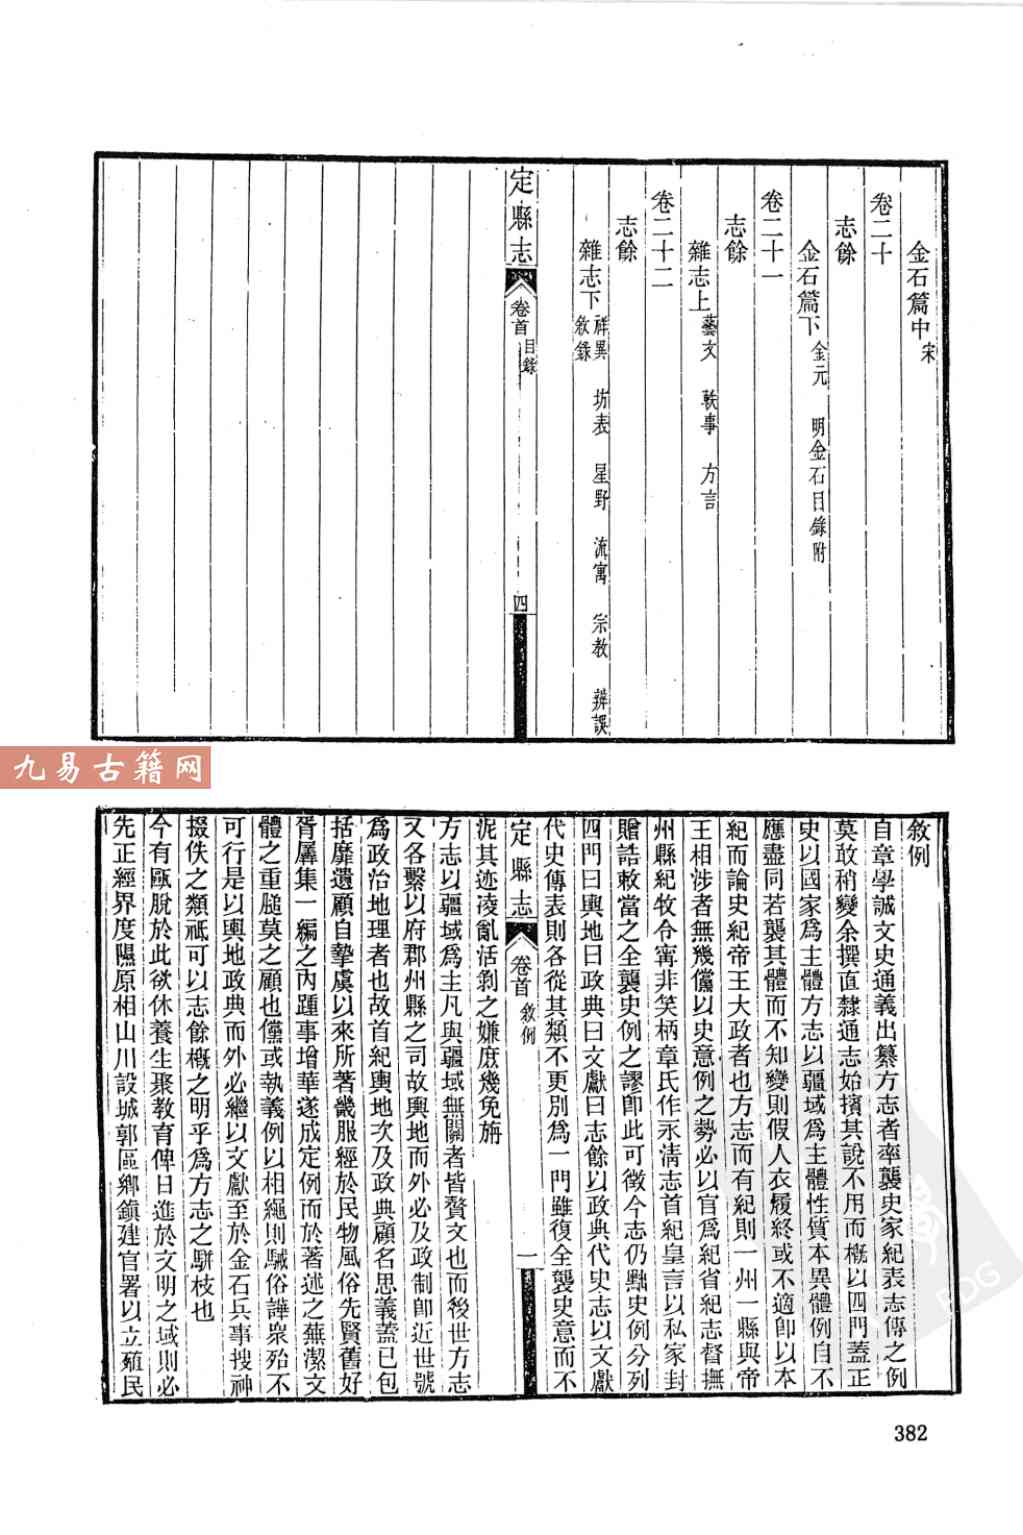 金石篇中宋
卷二十
志餘
金石篇下金元 明金石目錄附
卷二十一
志餘
雜志上藝文 軼事 方言
卷二十二
志餘
雜志下祥異 坊表 星野 流寓 宗教 辨誤
敘錄
定縣志 卷首 目錄 四
九易古籍网
敘例
自章學誠文史通義出纂方志者率襲史家紀表志傳之例
莫敢稍變余撰直隸通志始擯其說不用而概以四門蓋正
史以國家爲主體方志以疆域爲主體性質本異體例自不
應盡同若襲其體而不知變則假人衣履終或不適卽以本
紀而論史紀帝王大政者也方志而有紀則一州一縣與帝
王相涉者無幾儻以史意例之勢必以官爲紀省紀志督撫
州縣紀牧令寗非笑柄章氏作永淸志首紀皇言以私家封
贈誥敕當之全襲史例之謬卽此可徵今志仍黜史例分列
四門曰輿地曰政典曰文獻曰志餘以政典代史志以文獻
代史傳表則各從其類不更別爲一門雖復全襲史意而不
定縣志 卷首 敘例 一
泥其迹凌亂活剝之嫌庶幾免旃
方志以疆域爲主凡與疆域無關者皆贅文也而後世方志
又各繫以府郡州縣之司故輿地而外必及政制卽近世號
爲政治地理者也故首紀輿地次及政典顧名思義蓋已包
括靡遺顧自摯虞以來所著畿服經於民物風俗先賢舊好
胥屬集一編之內踵事增華遂成定例而於著述之蕪潔文
體之重膇莫之顧也儻或執義例以相繩則駴俗譁衆殆不
可行是以輿地政典而外必繼以文獻至於金石兵事搜神
掇佚之類祇可以志餘概之明乎爲方志之駢枝也
今有甌脫於此欲休養生聚敎育俾日進於文明之域則必
先正經界度隰原相山川設城郭區鄉鎭建官署以立殖民
382